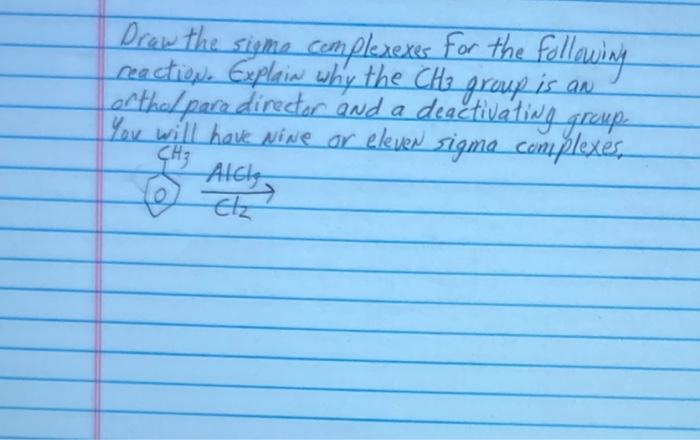 Draw the sigma complexexes for the following
reaction. Explain why the CH3 group is an
ortho/para director and a deactivating group.
You will have NiNe or eleveN sigma complexes.
CH3
AlCl3
Cl2